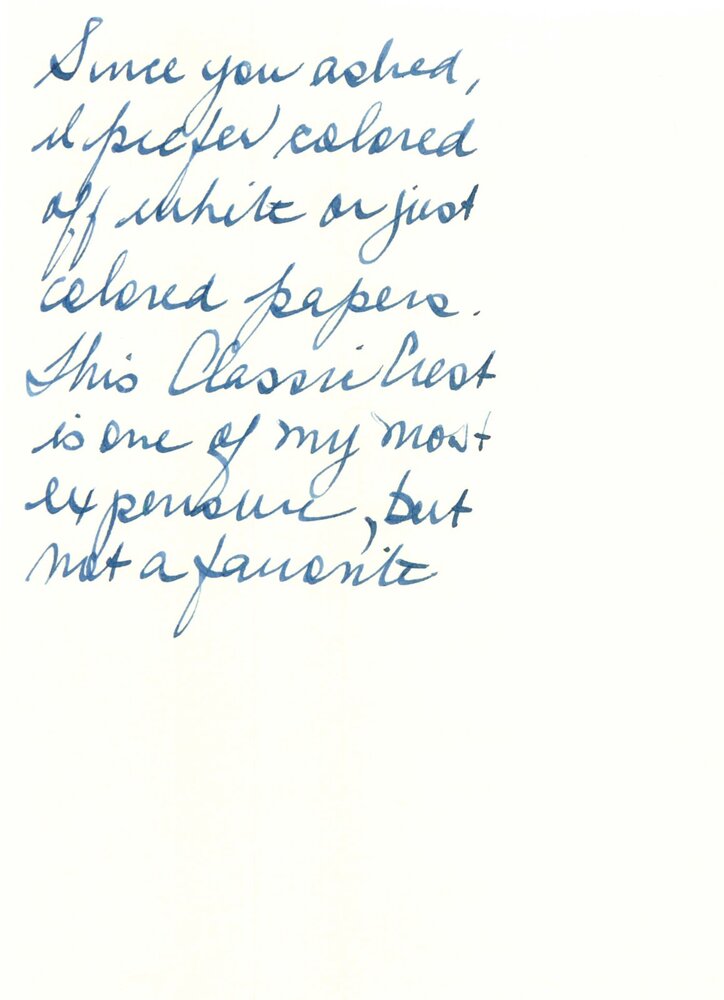 Since you asked,
I prefer colored
off white or just
colored papers.
This Classic Crest
is one of my most
expensive, but
not a favorite